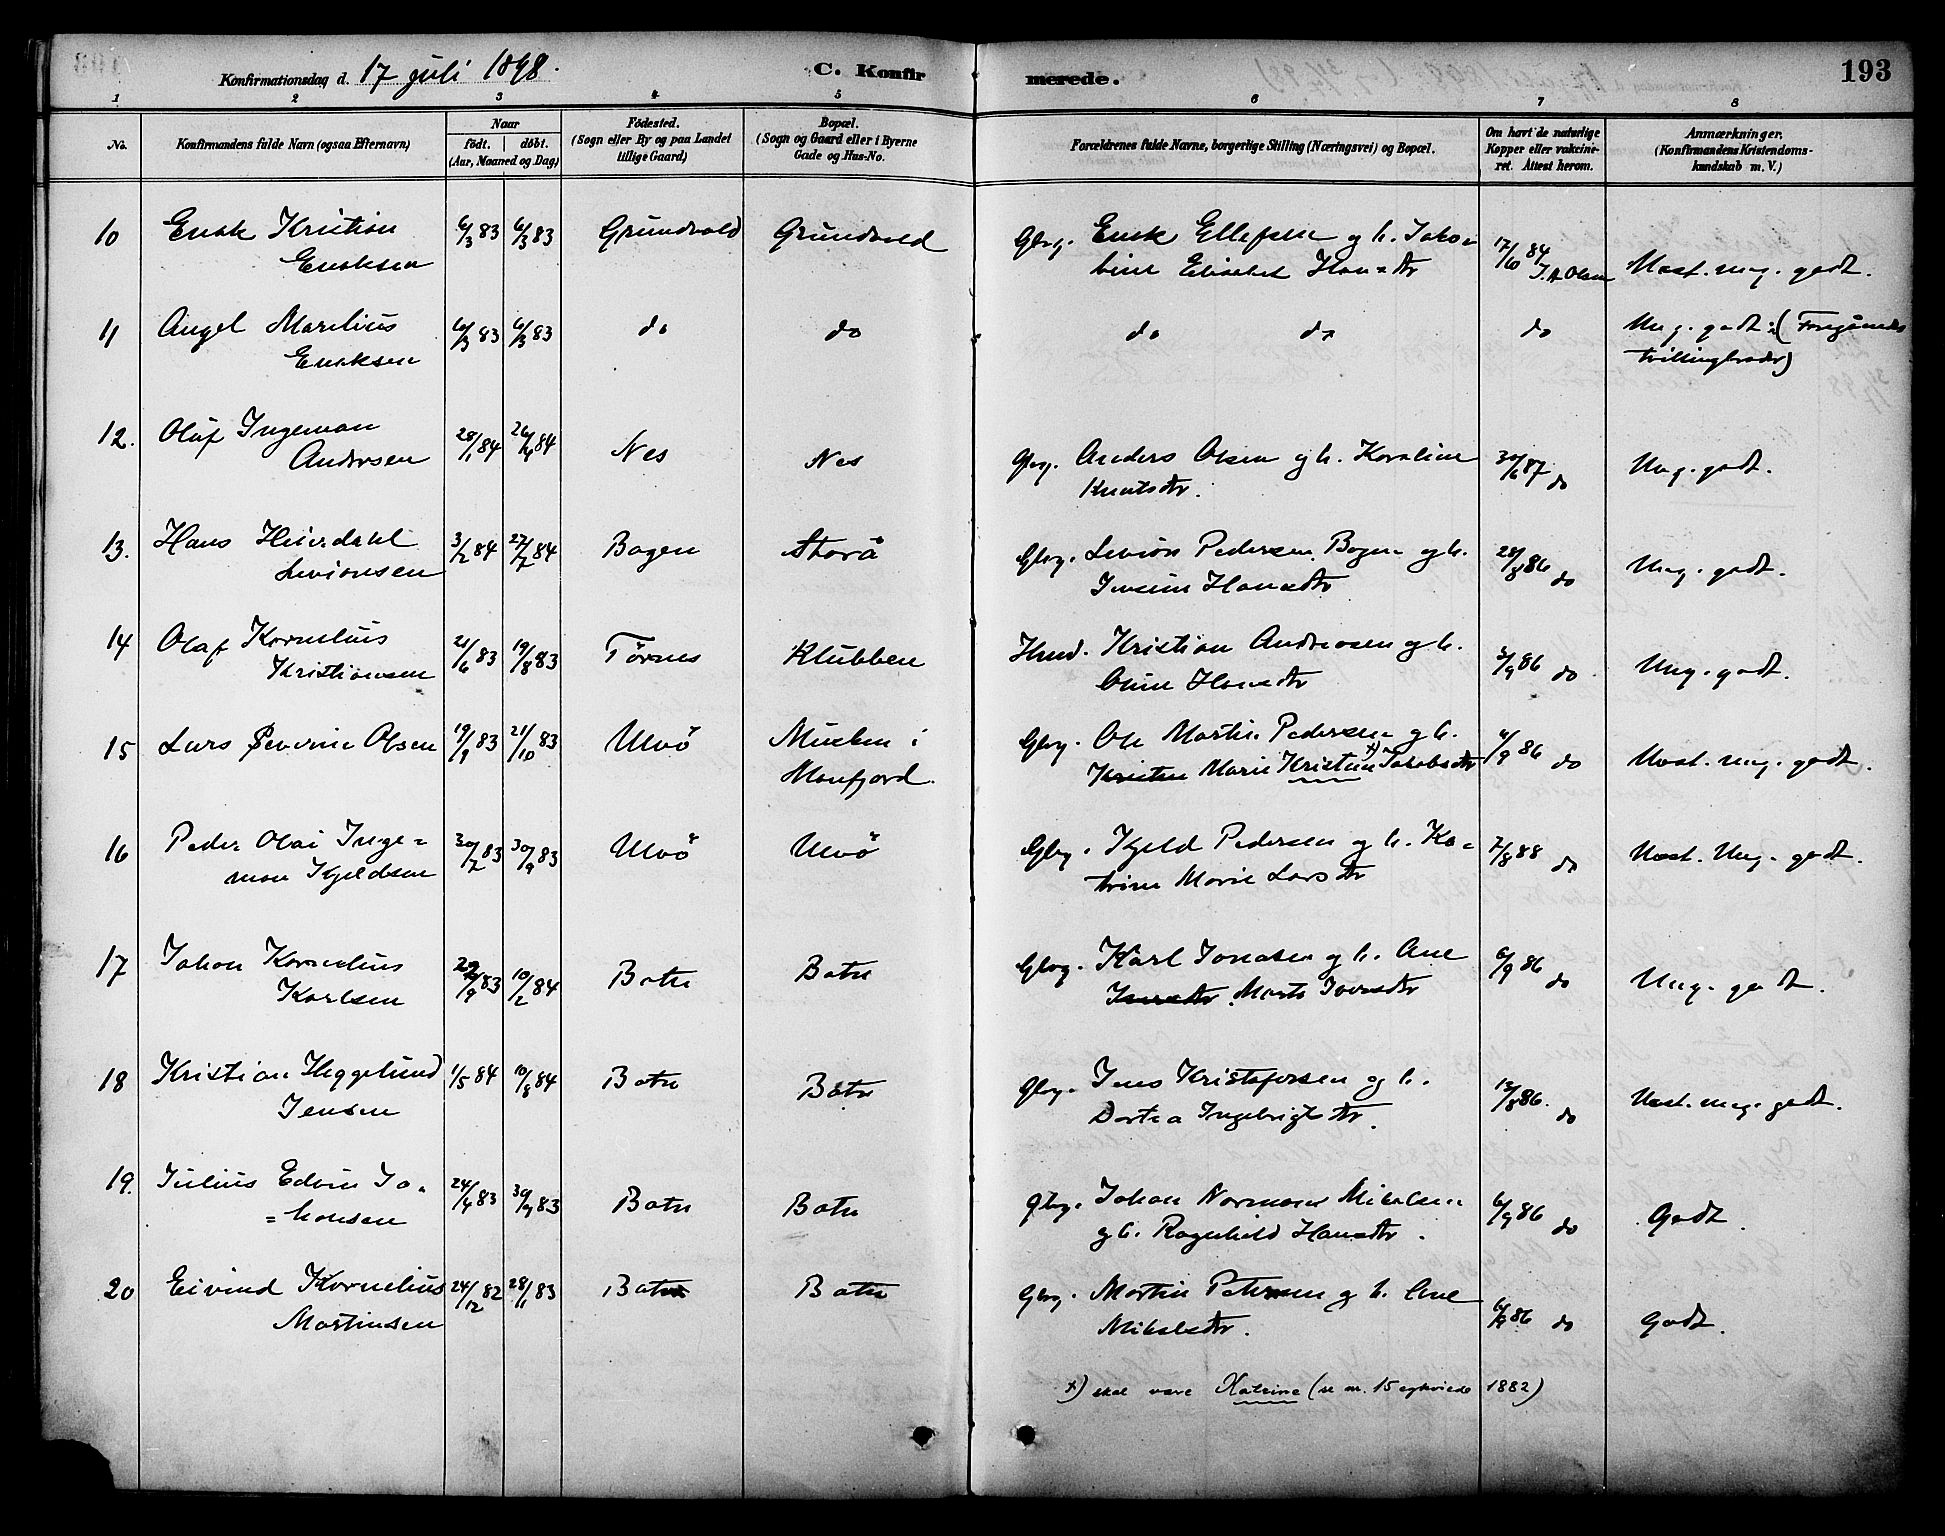 Konfirmationsdag d. 17 juli 1898. C. Konfirmerede. 193
1 2 3 4 5 6 7 8
No. Konfirmandens fulde Navn (ogsaa Efternavn) Naar födt. döbt. (Aar, Maaned og Dag) Födested. (Sogn eller By og paa Landet tillige Gaard) Bopæl. (Sogn og Gaard eller i Byerne Gade og Hus-No.
Forældrenes fulde Navne, borgerlige Stilling (Næringsvei) og Bopæl. Om havt de naturlige Kopper eller vakcineret. Attest herom. Anmærkninger. (Konfirmandens Kristendomskundskab m. V.)
10 Enok Kristian 6/3 83 6/3 83 Grundvold Grundvold Gbrg. Enok Ellefsen og h. Jako-
Enoksen bine Elisabet Hansdtr 17/6 84 Mest. meg. godt.
11 Angel Marelius 6/3 83 6/3 83 do do do do do Meg. godt. (Foregåendes
Enoksen tvillingbroder)
12. Oluf Ingeman 28/1 84 26/4 84 Nes Nes Gbrg. Anders Olsen og h. Karoline 30/6 87 do Meg. godt.
Andersen Knutsdtr.
13. Hans Heierdahl 3/2 84 27/7 84 Bogen Storå Gbrg. Levion Pedersen Bogen og h. 28/8 86 do Meg. godt.
Levionsen Hansdtr
14 Olaf Kornelius 21/6 83 19/8 83 Tørnes Klubben Husd. Kristian Andreasen og h. 86 do Meg. godt.
Kristiansen Hansdtr
15 Lars Severin Olsen 83 21/10 83 Ulvö i Gbrg. Ole Martin Pedersen og h. 86 do Mest. meg. godt.
Kristine Marie Kristine x) Jakobsdtr
16 Peder Olai Inge= 30/7 83 30/9 83 Ulvö Ulvö Gbrg. Kjeld Pedersen og h. Ka=
man Kjeldsen trine Marie Larsdtr 7/8 88 do Mest. Meg. godt.
17 Johan Kornelius 83 10/2 84 Botn Botn Gbrg. Karl Jonasen og h. Ane 6/9 86 do Meg. godt.
Karlsen Marta
18 Kristian Heggelund 1/5 84 10/8 84 Botn Botn Gbrg. Jens Kristofersen og h. 13/8 86. do Mest. meg. godt.
Jensen Dortea Ingebrigtsdtr.
19. Julius Edvin Jo= 24/4 83 30/9 83 Botn Botn Gbrg. Johan Normann Mikalsen 6/9 86 do Godt.
=hansen og h. Ragnhild Hansdtr.
20 Eivind Kornelius 24/12 82 28/1 83 Botn Botn Gbrg. Martin Petersen og h. Ane 86 do Godt.
Martinsen Mikalsdtr.
x) skal være Katrine (se nr. 15 1882)